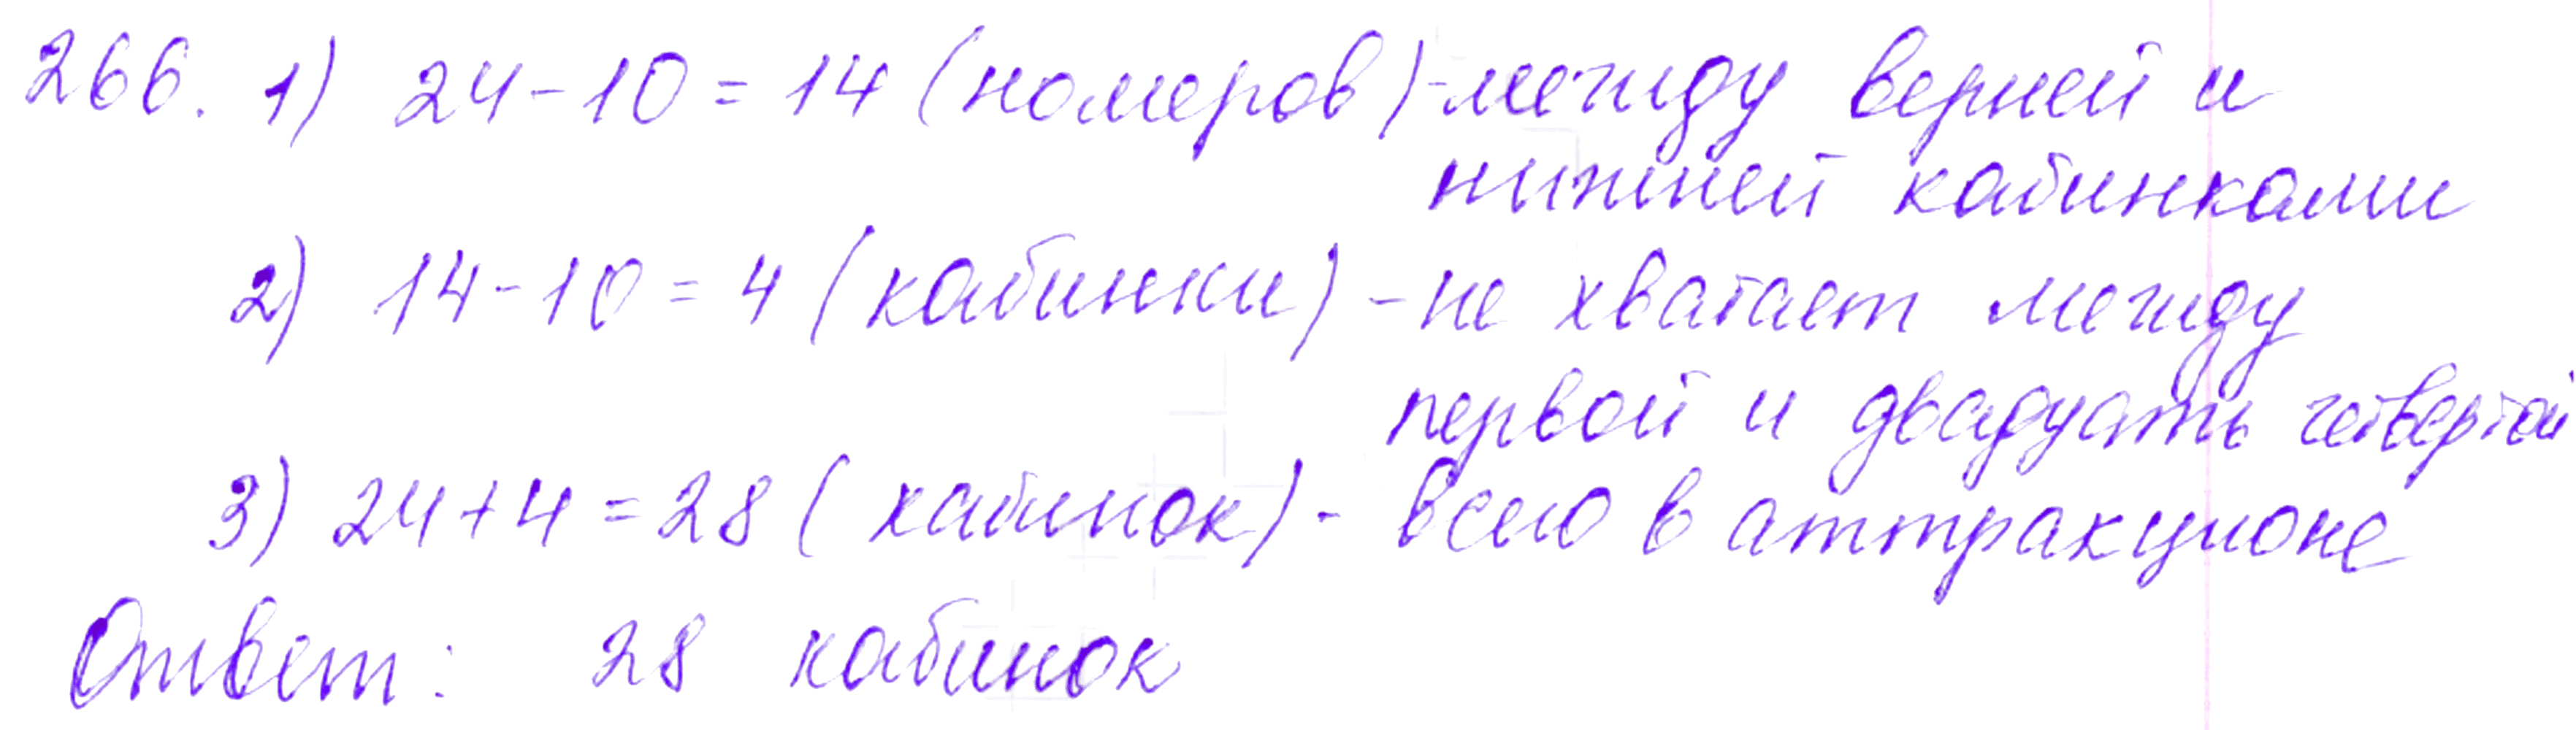 266. 1) 24 - 10 = 14 (номеров) - между верней и
нижней кабинками
2) 14 - 10 = 4 (кабинки) - не хватает между
первой и двадцать четвертой
3) 24 + 4 = 28 (кабинок) - всего в аттракционе
Ответ: 28 кабинок